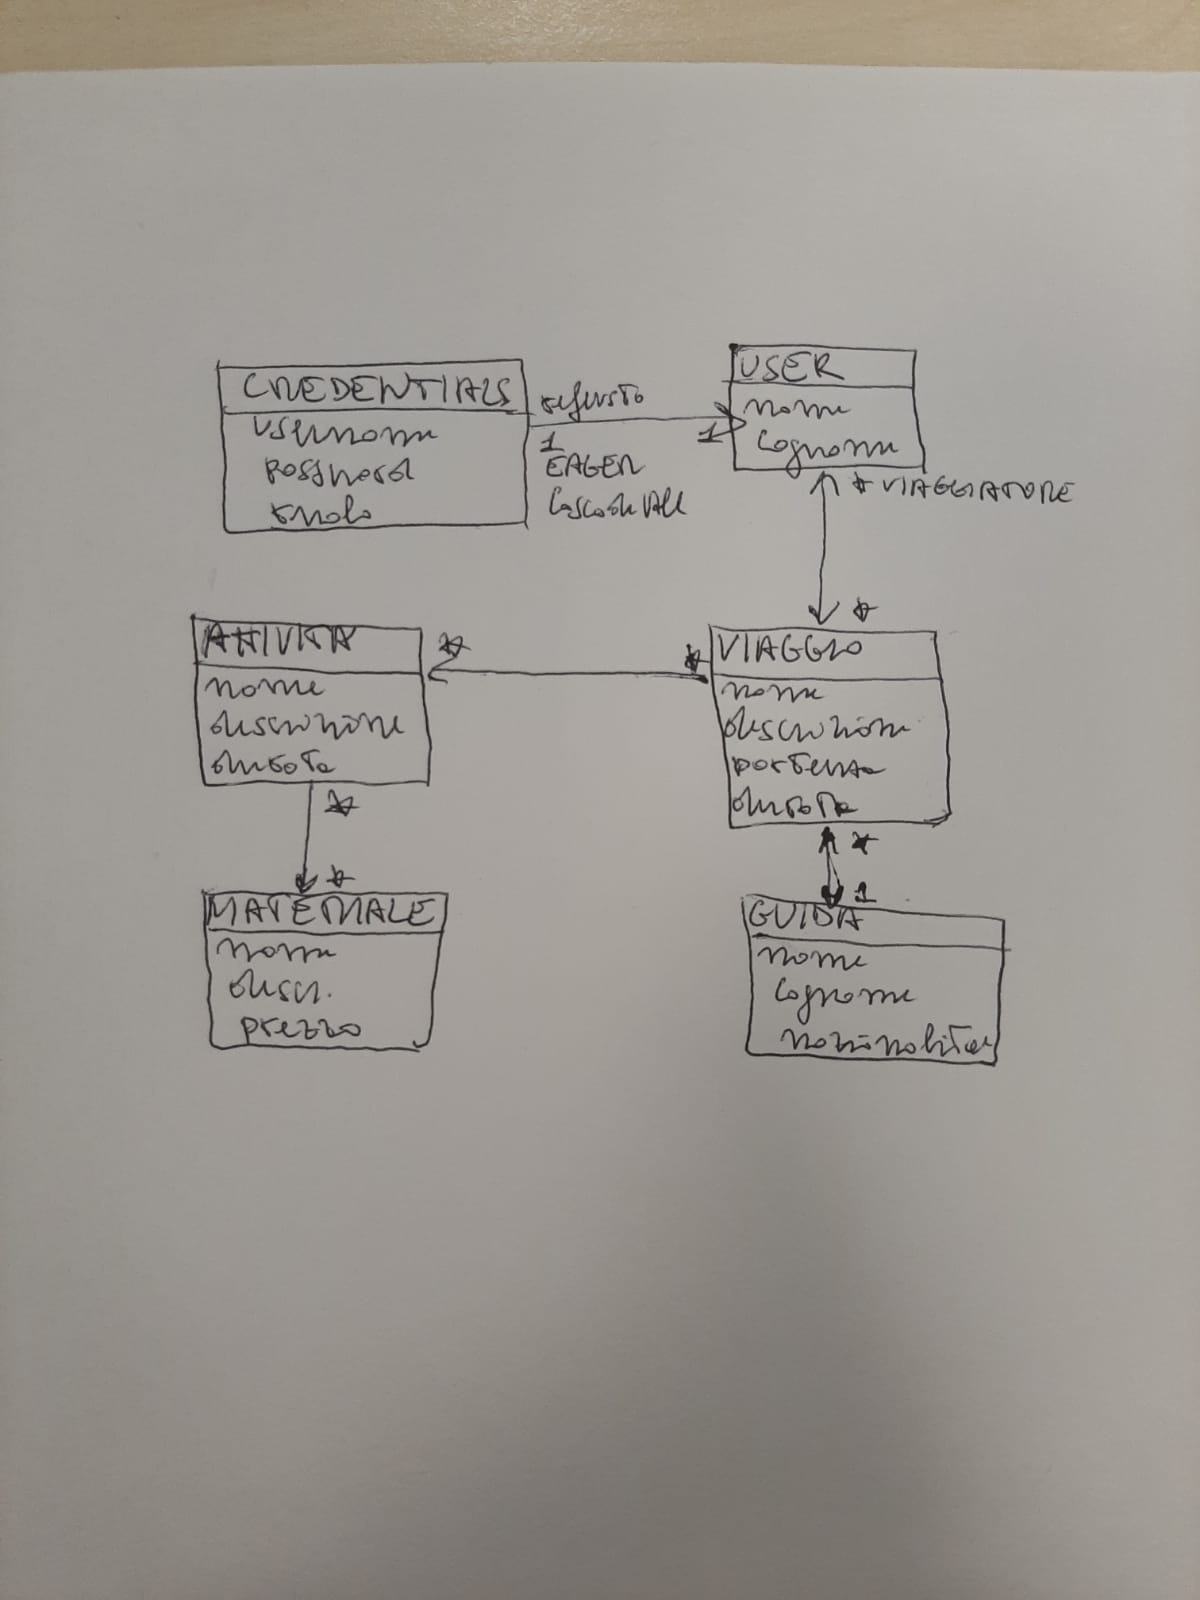 CREDENTIALS
username
password
ruolo
1
EAGER
Cascade All
1
USER
nome
cognome
* VIAGGIATORE
*
ATTIVITA
nome
descrizione
durata
*
*
VIAGGIO
nome
descrizione
partenza
durata
*
*
MATERIALE
nome
descr.
prezzo
*
1
GUIDA
nome
cognome
nazionalità